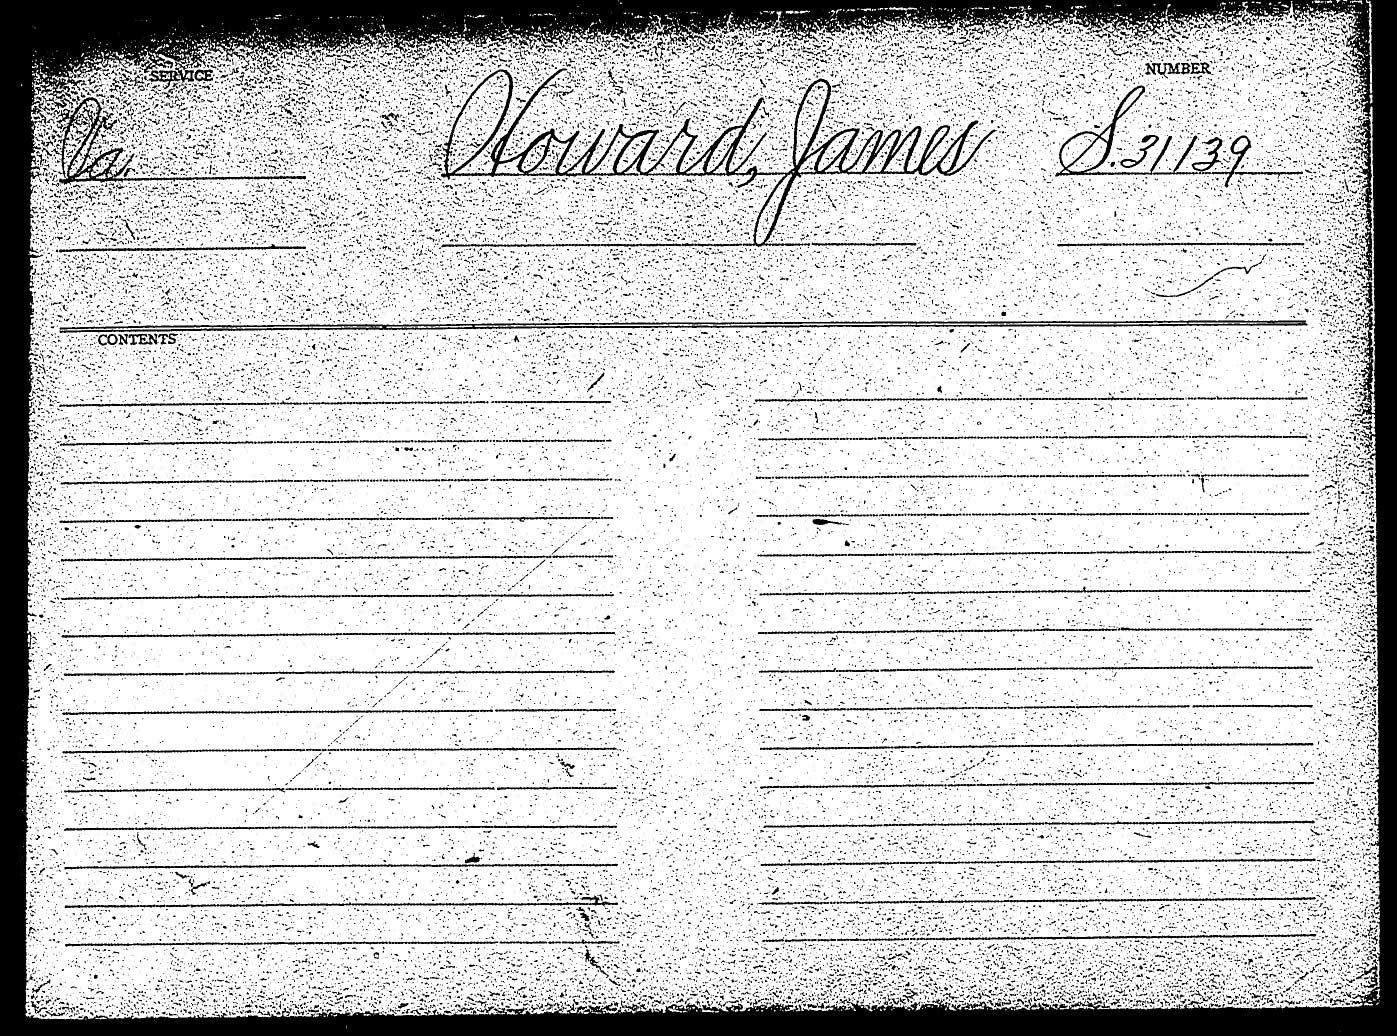 SERVICE
NUMBER
Va.
Howard, James
S.31139
CONTENTS